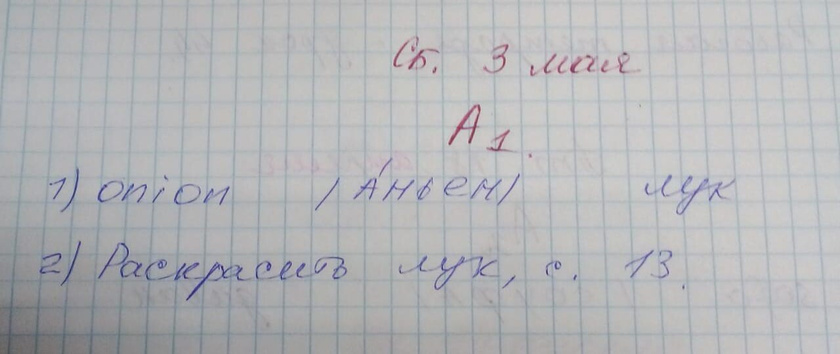 Сб. 3 мая
А1.
1) onion /А́ньен/ лук
2) Раскрасить лук, с. 13.